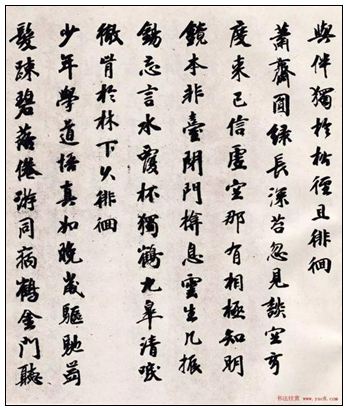 與伴獨於松徑且徘徊
蕭齋綠長深苔忽見談空
度来已信虛空那有相極知明
鏡本非臺閉門息雲生几振
錫忘言水覆杯獨鶴九皋清唳
徹肯於林下久徘徊
少年學道悟真如晚歲驅馳
髮疎碧落倦游同病鶴金門聽
书法欣赏 www.yac8.com